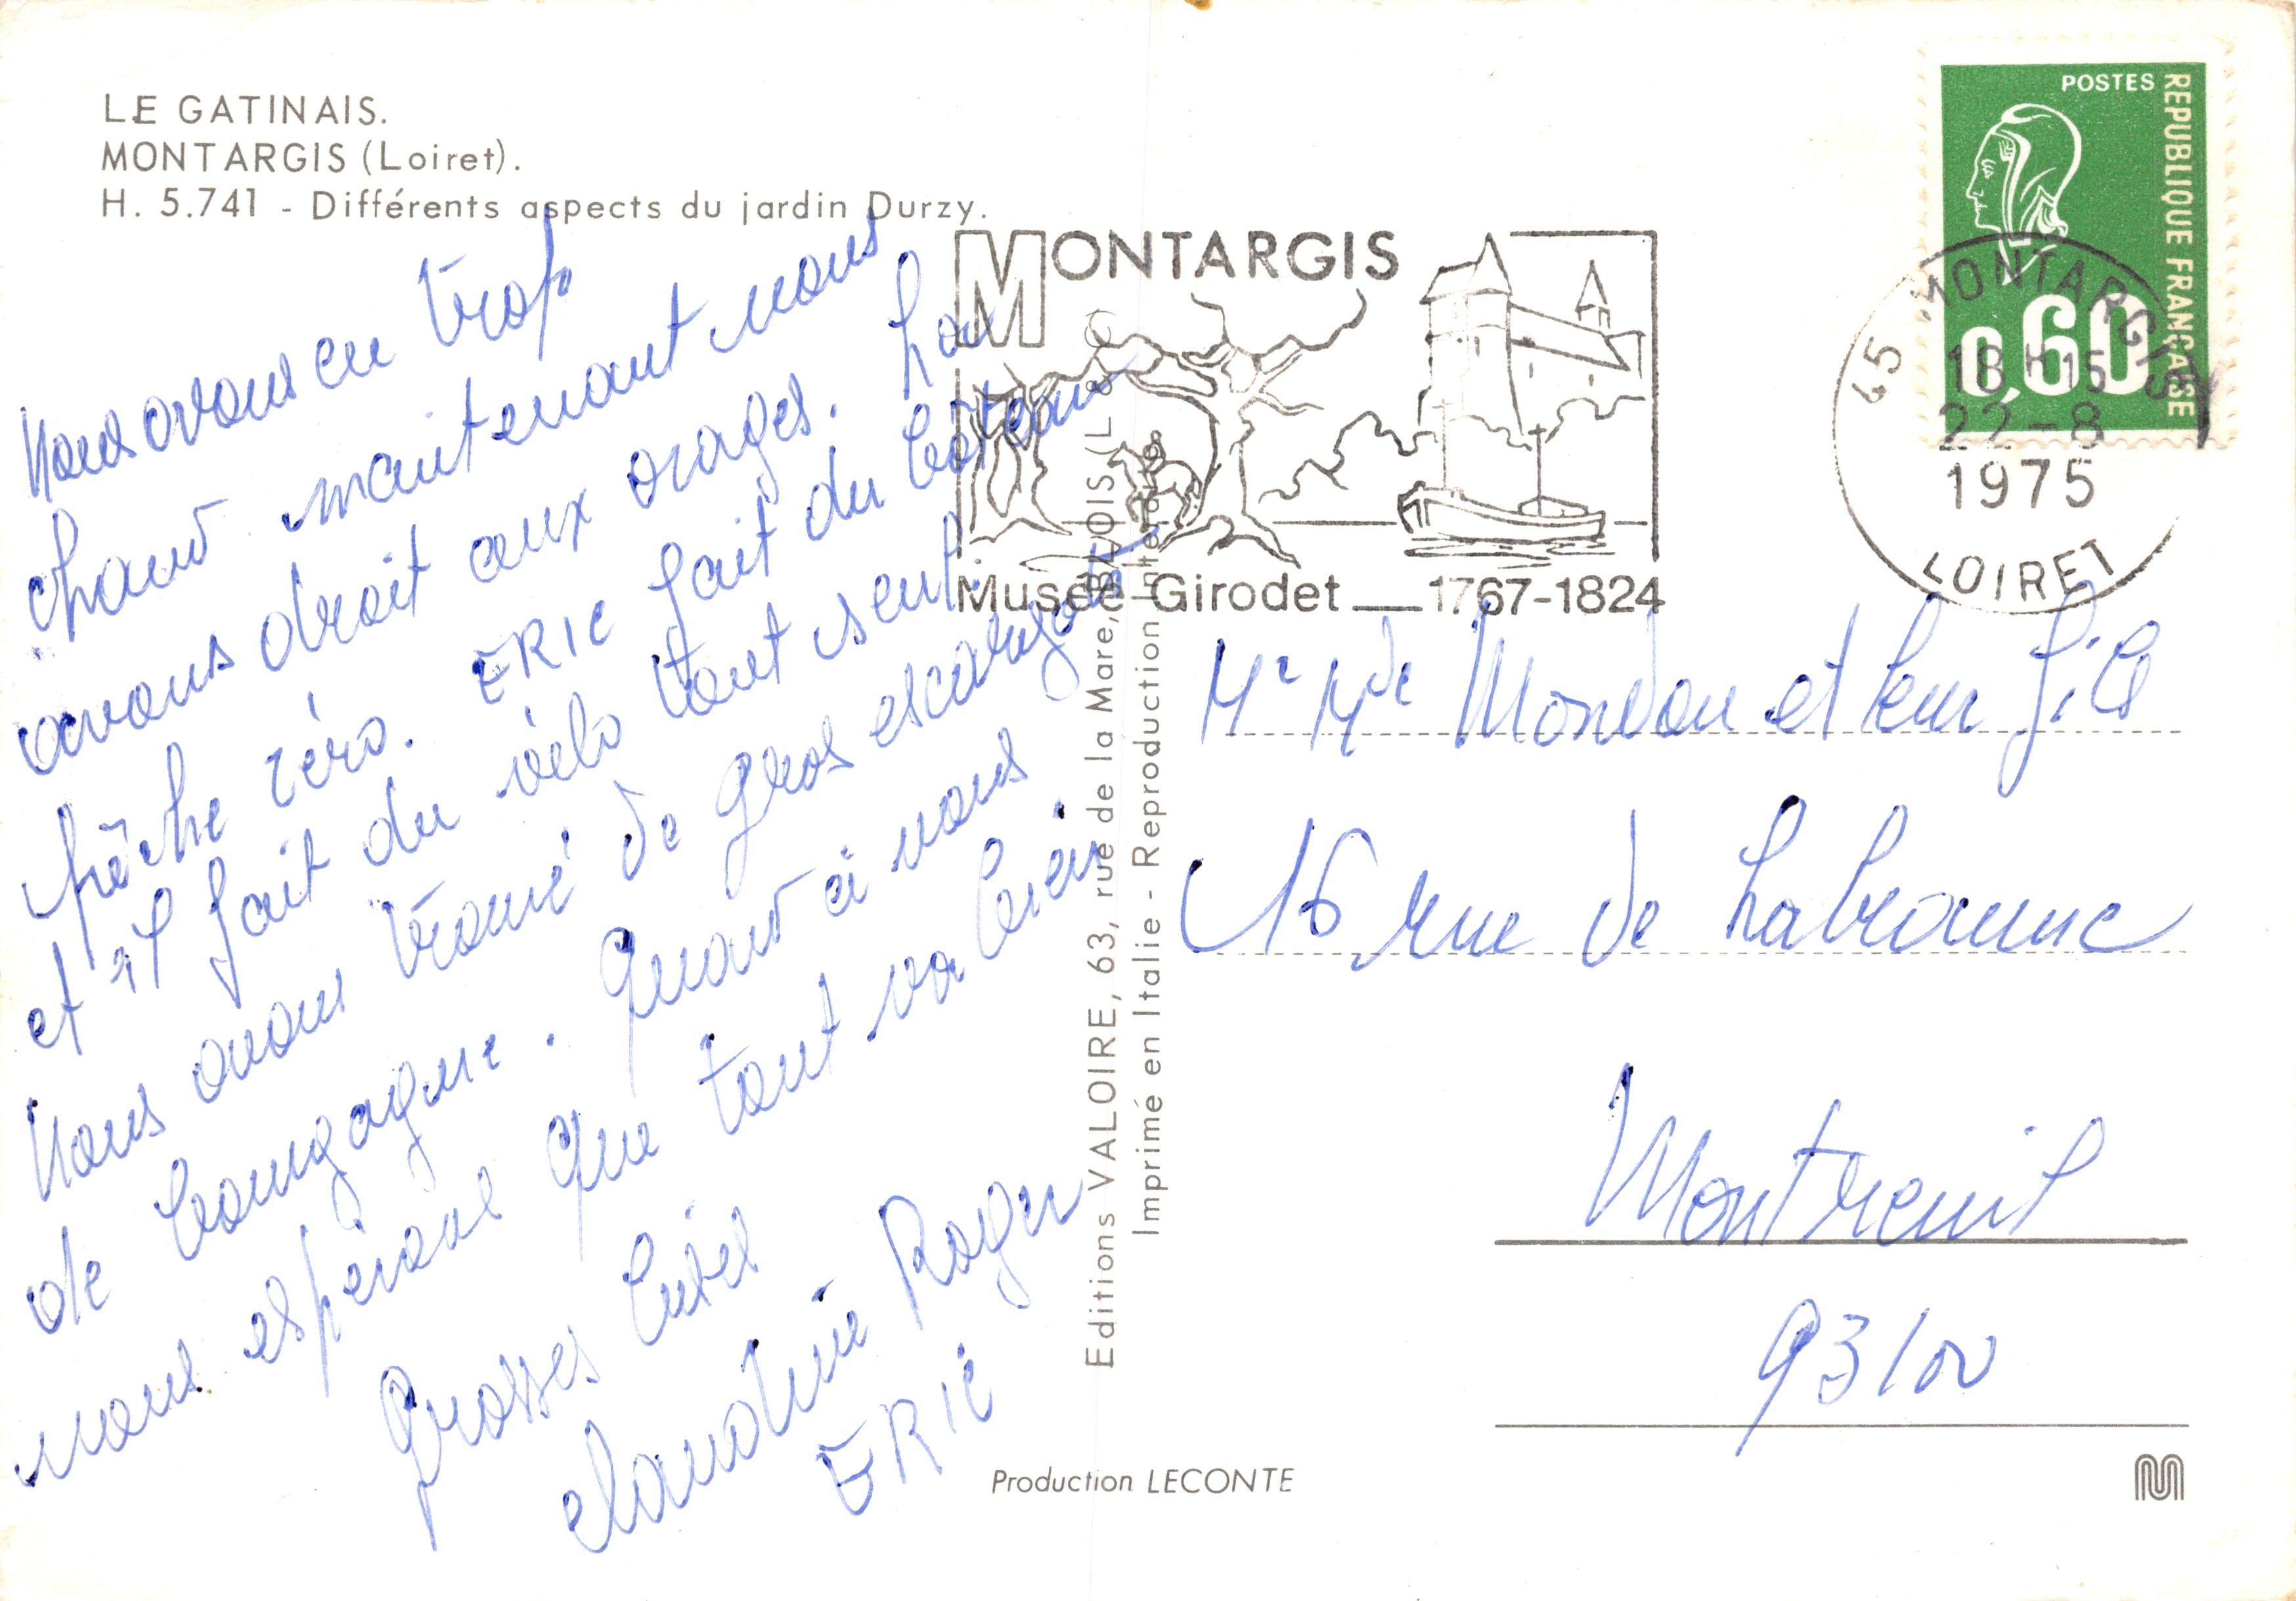 LE GATINAIS.
MONTARGIS (Loiret).
H. 5.741 - Différents aspects du jardin Durzy.
Nous avons eu trop
chaud maintenant nous
avons droit aux orages. La
pêche zéro. ERIC fait du bâteau
et il fait du vélo tout seul.
Nous avons trouvé de gros escargots
de bourgogne. Quand à nous
nous espérons que tout va bien.
Grosses bises
claudine Roger
ERIC
Editions VALOIRE, 63, rue de la Mare, BLOIS (L & C)
Imprimé en Italie - Reproduction interdite
MONTARGIS
Musée Girodet 1767-1824
POSTES
REPUBLIQUE FRANÇAISE
0,60
45 MONTARGIS
18 H 15
22-8
1975
LOIRET
Mr Mde Mondon et leur fils
16 rue de
Montreuil
93100
Production LECONTE
M